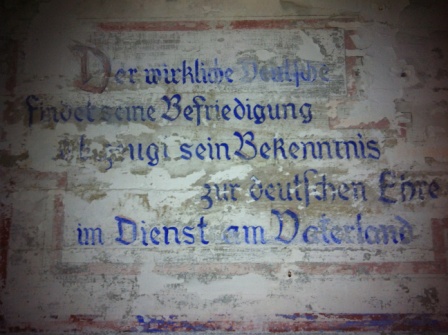 Der wirkliche Deutsche
findet seine Befriedigung
zeugt sein Bekenntnis
zur deutschen Ehre
im Dienst am Vaterland